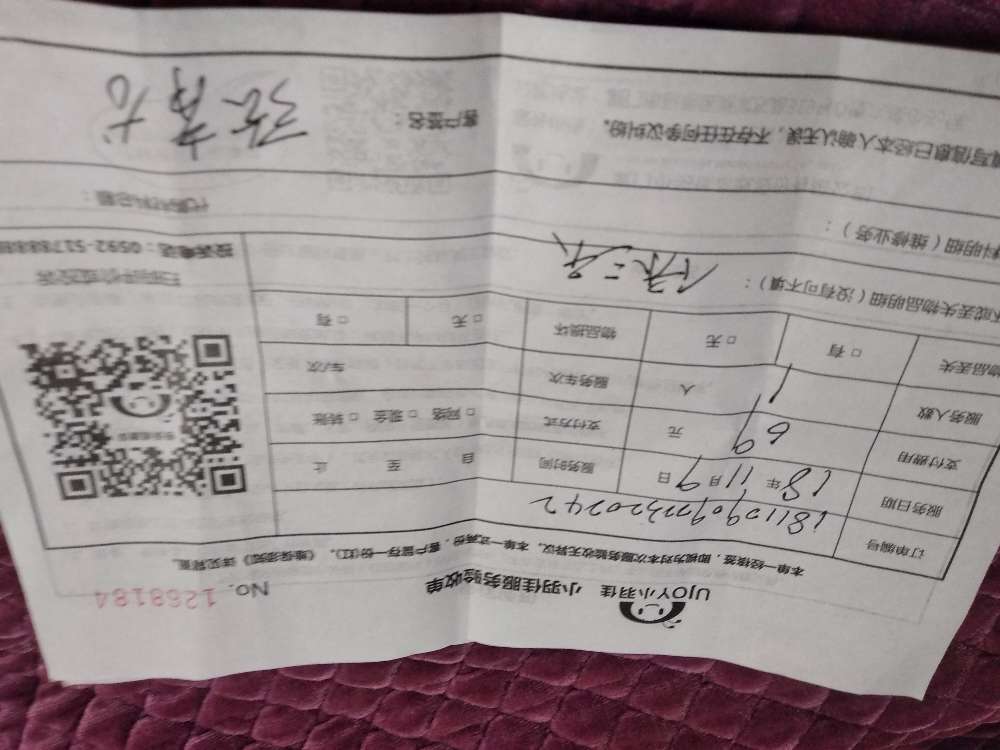 UJOY小羽佳 小羽佳服务验收单 No. 1268184
本单一经核签，即视为对本次服务验收无异议。本单一式两份，客户留存一份(红)，《维保须知》详见背面。
订单编号 181109093320242
服务日期 18年11月9日 服务时间 自 至 止
支付费用 69元 支付方式 □网络 □现金 □转账
服务人数 1人 服务车次 车/次
物品丢失 □有 □无 物品损坏 □无 □有
扫码评价或投诉
投诉电话：0592-5178888
或丢失物品明细（没有可不填）：
料明细（维修业务）： 代购材料总额：
填写信息已经本人确认无误，不存在任何争议纠纷。 客户签名：